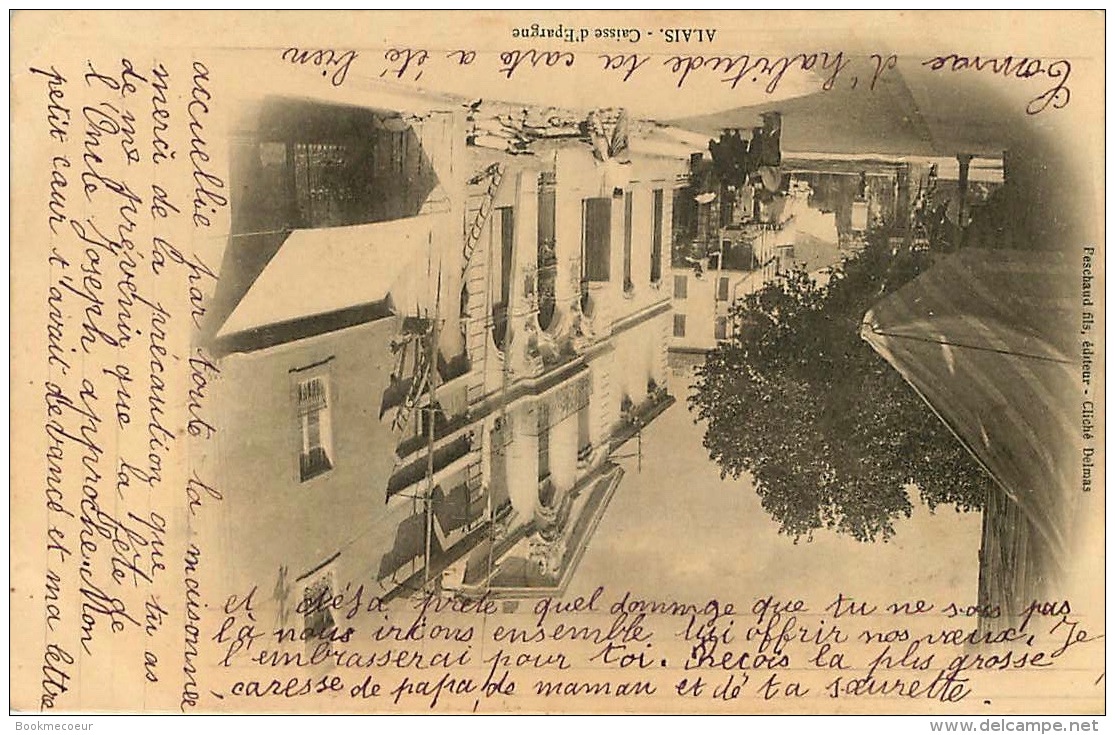 ALAIS. - Caisse d'Epargne
Comme d'habitude ta carte a été bien
accueillie par toute la maisonnée
merci de la précaution que tu as
de me prévenir que la fete de
l'Oncle Joseph approche. Mon
petit cœur t'avait devancé et ma lettre
et déja prete quel dommage que tu ne sois pas
là nous irions ensemble lui offrir nos vœux. Je
l'embrasserai pour toi. Reçois la plus grosse
caresse de papa, de maman et de ta sœurette.
Peschaud fils, éditeur - Cliché Delmas
Bookmecoeur
www.delcampe.net